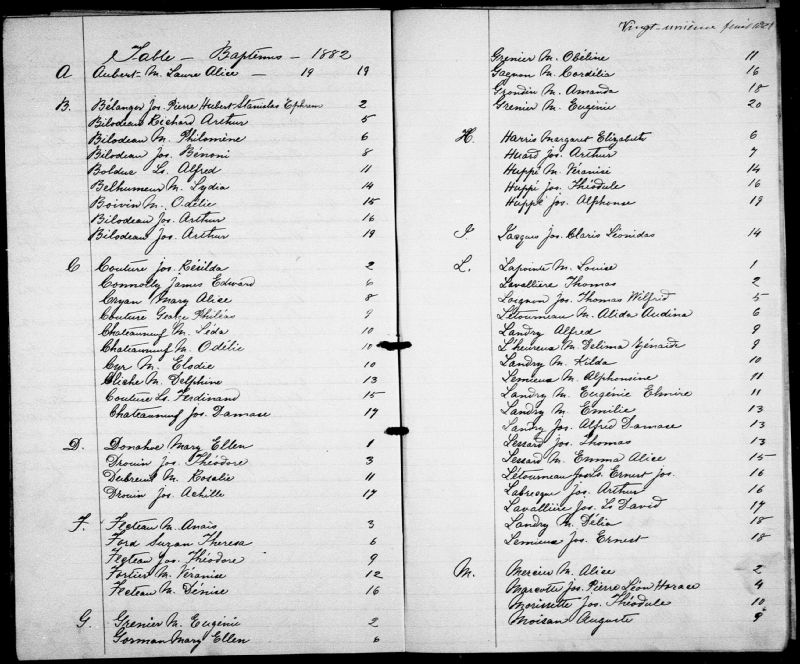 Table — Baptêmes — 1882
A Aubert M. Laure Alice — 19 19
B. Bélanger Jos. Pierre Hubert Stanislas Ephrem 2
Bilodeau Richard Arthur 5
Bilodeau M. Philomène 6
Bilodeau Jos. Bénoni 8
Bolduc Ls. Alfred 11
Belhumeur M. Lydia 14
Boivin M. Odélie 15
Bilodeau Jos. Arthur 16
Bilodeau Jos. Arthur 19
C Couture Jos. Résilda 2
Connolly James Edward 6
Cryan Mary Alice 8
Couture George Philéas 9
Chateauneuf M. Léda 10
Chateauneuf M. Odélie 10
Cyr M. Elodie 10
Cliche M. Delphine 13
Couture Ls. Ferdinand 15
Chateauneuf Jos. Damase 17
D. Donahoe Mary Ellen 1
Drouin Jos. Théodore 3
Dubreuil M. Rosalie 11
Drouin Jos. Achille 17
F. Fecteau M. Anaïs 3
Ford Suzan Theresa 6
Fecteau Jos. Théodore 9
Fortier M. Véranise 12
Fecteau M. Dénise 16
G. Grenier M. Eugénie 2
Gorman Mary Ellen 6
Vingt-unième feuillet
Grenier M. Obéline 11
Gagnon M. Cordélia 16
Grondin M. Amanda 18
Grenier M. Eugénie 20
H. Harris Margaret Elizabeth 6
Huard Jos. Arthur 7
Huppé M. Véranise 14
Huppé Jos. Théodule 16
Huppé Jos. Alphonse 19
J. Jacques Jos. Claris Léonidas 14
L. Lapointe M. Louise 1
Lavallière Thomas 2
Losgnon Jos. Thomas Wilfrid 5
Létourneau M. Alida Audina 6
Landry Alfred 9
L'heureux M. Delima Zénaïde 9
Landry M. Hilda 10
Lemieux M. Alphonsine 11
Landry M. Eugénie Elmire 11
Landry M. Emilie 13
Landry Jos. Alfred Damase 13
Lessard Jos. Thomas 13
Lessard M. Emma Alice 15
Létourneau Jos. Ls. Ernest Jos. 16
Labrecque Jos. Arthur 16
Lavallière Jos. Ls David 17
Landry M. Délia 18
Lemieux Jos. Ernest 18
M. Mercier M. Alice 2
Marcotte Jos. Pierre Léon Horace 4
Morissette Jos. Théodule 10
Moisan Auguste 9